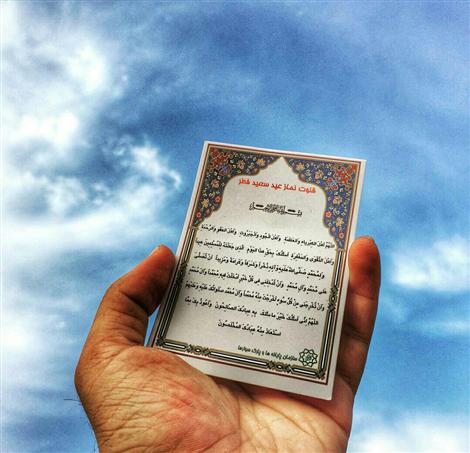 قنوت نماز عید سعید فطر
بسم الله الرحمن الرحیم
اَللّهُمَّ اَهْلَ الْکِبْرِیاءِ وَالْعَظَمَةِ وَ اَهْلَ الْجُودِ وَالْجَبَرُوتِ وَ اَهْلَ الْعَفْوِ وَالرَّحْمَةِ
وَ اَهْلَ التَّقْوى وَالْمَغْفِرَةِ اَسْئَلُکَ بِحَقِّ هذَا الْیَوْمِ الَّذى جَعَلْتَهُ لِلْمُسْلِمینَ عیداً
وَ لِمُحَمَّدٍ صَلَّى اللهُ عَلَیْهِ وَ آلِهِ ذُخْراً وَ شَرَفاً وَ کَرامَةً وَ مَزیداً اَنْ تُصَلِّىَ
عَلى مُحَمَّدٍ وَ آلِ مُحَمَّدٍ وَ اَنْ تُدْخِلَنى فى کُلِّ خَیْرٍ اَدْخَلْتَ فیهِ مُحَمَّداً وَ آلَ مُحَمَّدٍ
وَ اَنْ تُخْرِجَنى مِنْ کُلِّ سُوءٍ اَخْرَجْتَ مِنْهُ مُحَمَّداً وَ آلَ مُحَمَّدٍ صَلَواتُکَ عَلَیْهِ وَ عَلَیْهِمْ
اَللّهُمَّ اِنّى اَسْئَلُکَ خَیْرَ ما سَئَلَکَ بِهِ عِبادُکَ الصّالِحُونَ وَ اَعُوذُ بِکَ مِمَّا
اسْتَعاذَ مِنْهُ عِبادُکَ الْمُخْلِصُونَ
سازمان پایانه ها و پارک سوارها